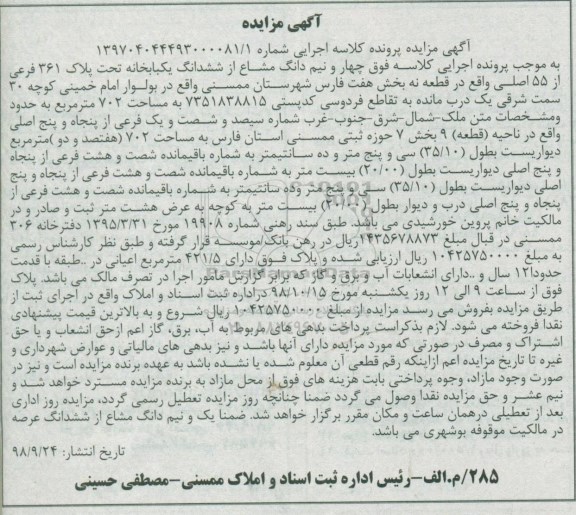 آگهی مزایده
آگهی مزایده پرونده کلاسه اجرایی شماره ۱۳۹۷۰۴۰۴۴۴۹۳۰۰۰۰۸۱/۱
به موجب پرونده اجرایی کلاسه فوق چهار و نیم دانگ مشاع از ششدانگ یکبابخانه تحت پلاک ۳۶۱ فرعی
از ۵۵ اصلی واقع در قطعه نه بخش هفت فارس شهرستان ممسنی واقع در بولوار امام خمینی کوچه ۳۰
سمت شرقی یک درب مانده به تقاطع فردوسی کدپستی ۷۳۵۱۸۳۸۸۱۵ به مساحت ۷۰۲ مترمربع به حدود
ومشخصات متن ملک-شمال-شرق-جنوب-غرب شماره سیصد و شصت و یک فرعی از پنجاه و پنج اصلی
واقع در ناحیه (قطعه) ۹ بخش ۷ حوزه ثبتی ممسنی استان فارس به مساحت ۷۰۲ (هفتصد و دو )مترمربع
دیواریست بطول (۳۵/۱۰) سی و پنج متر و ده سانتیمتر به شماره باقیمانده شصت و هشت فرعی از پنجاه
و پنج اصلی دیواریست بطول (۲۰/۰۰) بیست متر به شماره باقیمانده شصت و هشت فرعی از پنجاه و پنج
اصلی دیواریست بطول (۳۵/۱۰) سی و پنج متر وده سانتیمتر به شماره باقیمانده شصت و هشت فرعی از
پنجاه و پنج اصلی درب و دیوار بطول (۲۰/۰۰) بیست متر به کوچه به عرض هشت متر ثبت و صادر و در
مالکیت خانم پروین خورشیدی می باشد. طبق سند رهنی شماره ۱۹۹۰۸ مورخ ۱۳۹۵/۳/۳۱ دفترخانه ۳۰۶
ممسنی در قبال مبلغ ۱۴۳۵۶۷۸۸۷۳ریال در رهن بانک/موسسه قرار گرفته و طبق نظر کارشناس رسمی
به مبلغ ۱۰۴۲۵۷۵۰۰۰۰ ریال ارزیابی شده و پلاک فوق دارای ۴۲۱/۵ مترمربع اعیانی در ..طبقه با قدمت
حدودا۱۲ سال و ..دارای انشعابات آب و برق و گاز که برابر گزارش مامور اجرا در تصرف مالک می باشد. پلاک
فوق از ساعت ۹ الی ۱۲ روز یکشنبه مورخ ۹۸/۱۰/۱۵ دراداره ثبت اسناد و املاک واقع در اجرای ثبت از
طریق مزایده بفروش می رسد مزایده از مبلغ ۱۰۴۲۵۷۵۰۰۰۰ ریال شروع و به بالاترین قیمت پیشنهادی
نقدا فروخته می شود. لازم بذکراست پرداخت بدهی های مربوط به آب، برق، گاز اعم ازحق انشعاب و یا حق
اشتراک و مصرف در صورتی که مورد مزایده دارای آنها باشد و نیز بدهی های مالیاتی و عوارض شهرداری و
غیره تا تاریخ مزایده اعم ازاینکه رقم قطعی آن معلوم شده یا نشده باشد به عهده برنده مزایده است و نیز در
صورت وجود مازاد، وجوه پرداختی بابت هزینه های فوق از محل مازاد به برنده مزایده مسترد خواهد شد و
نیم عشر و حق مزایده نقدا وصول می گردد ضمنا چنانچه روز مزایده تعطیل رسمی گردد، مزایده روز اداری
بعد از تعطیلی درهمان ساعت و مکان مقرر برگزار خواهد شد. ضمنا یک و نیم دانگ مشاع از ششدانگ عرصه
در مالکیت موقوفه بوشهری می باشد.
تاریخ انتشار: ۹۸/۹/۲۴
۲۸۵/م.الف-رئیس اداره ثبت اسناد و املاک ممسنی-مصطفی حسینی